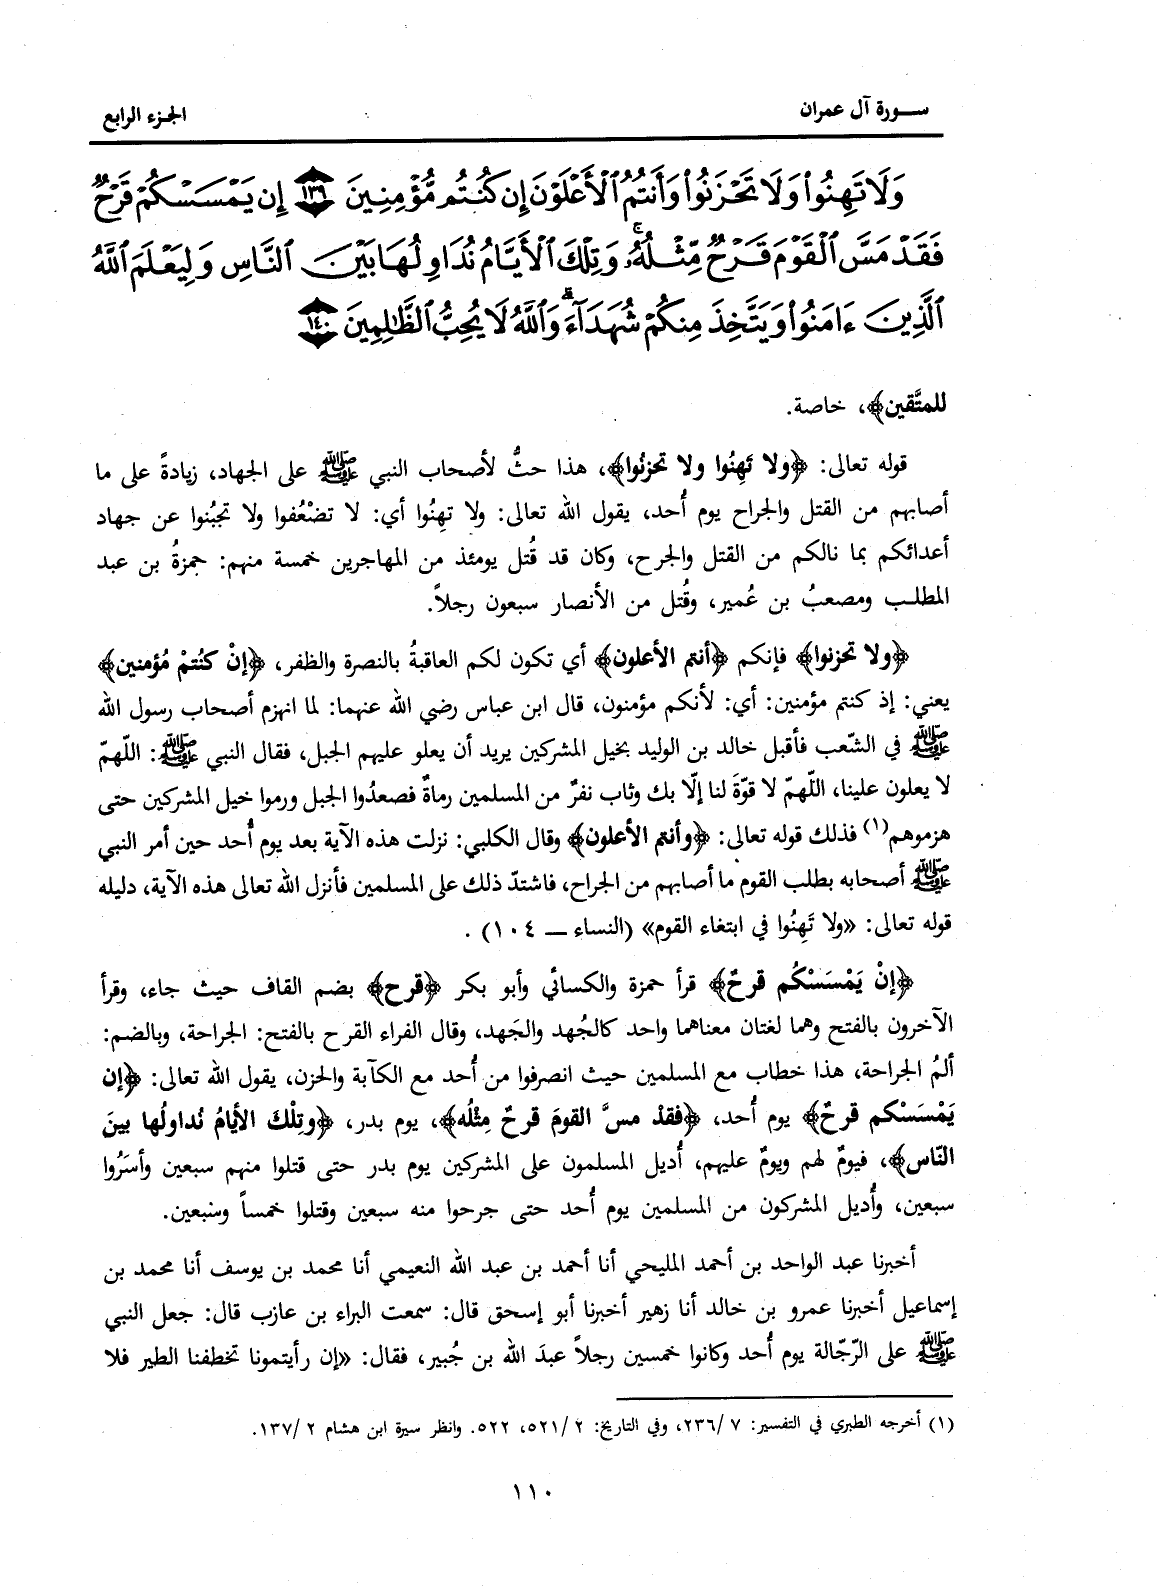 سورة آل عمران
الجزء الرابع
وَلَا تَهِنُوا۟ وَلَا تَحْزَنُوا۟ وَأَنتُمُ ٱلْأَعْلَوْنَ إِن كُنتُم مُّؤْمِنِينَ ١٣٩ إِن يَمْسَسْكُمْ قَرْحٌ
فَقَدْ مَسَّ ٱلْقَوْمَ قَرْحٌ مِّثْلُهُۥ ۚ وَتِلْكَ ٱلْأَيَّامُ نُدَاوِلُهَا بَيْنَ ٱلنَّاسِ وَلِيَعْلَمَ ٱللَّهُ
ٱلَّذِينَ ءَامَنُوا۟ وَيَتَّخِذَ مِنكُمْ شُهَدَآءَ ۗ وَٱللَّهُ لَا يُحِبُّ ٱلظَّٰلِمِينَ ١٤٠
للمتَّقين﴾، خاصة.
قوله تعالى: ﴿ولا تَهِنُوا ولا تحزنُوا﴾، هذا حثٌّ لأصحاب النبي ﷺ على الجهاد، زيادةً على ما
أصابهم من القتل والجراح يوم أُحد، يقول الله تعالى: ولا تهِنُوا أي: لا تضعُفوا ولا تجبُنوا عن جهاد
أعدائكم بما نالكم من القتل والجرح، وكان قد قُتل يومئذ من المهاجرين خمسة منهم: حمزةُ بن عبد
المطلب ومصعبُ بن عُمير، وقُتل من الأنصار سبعون رجلاً.
﴿ولا تحزنوا﴾ فإنكم ﴿أنتم الأعلون﴾ أي تكون لكم العاقبةُ بالنصرة والظفر، ﴿إنْ كنُتمْ مُؤمنين﴾
يعني: إذ كنتم مؤمنين: أي: لأنكم مؤمنون، قال ابن عباس رضي الله عنهما: لما انهزم أصحاب رسول الله
ﷺ في الشّعب فأقبل خالد بن الوليد بخيل المشركين يريد أن يعلو عليهم الجبل، فقال النبي ﷺ: اللهمّ
لا يعلون علينا، اللّهمّ لا قوّةَ لنا إلّا بك وثاب نفرٌ من المسلمين رماةٌ فصعدُوا الجبل ورموا خيل المشركين حتى
هزموهم(١) فذلك قوله تعالى: ﴿وأنتم الأعلون﴾ وقال الكلبي: نزلت هذه الآية بعد يوم أحد حين أمر النبي
ﷺ أصحابه بطلب القوم ما أصابهم من الجراح، فاشتدّ ذلك على المسلمين فأنزل الله تعالى هذه الآية، دليله
قوله تعالى: «ولا تَهِنُوا في ابتغاء القوم» (النساء — ١٠٤) .
﴿إنْ يَمْسَسْكُم قرحٌ﴾ قرأ حمزة والكسائي وأبو بكر ﴿قرح﴾ بضم القاف حيث جاء، وقرأ
الآخرون بالفتح وهما لغتان معناهما واحد كالجُهد والجَهد، وقال الفراء القرح بالفتح: الجراحة، وبالضم:
ألمُ الجراحة، هذا خطاب مع المسلمين حيث انصرفوا من أُحد مع الكآبة والحزن، يقول الله تعالى: ﴿إن
يَمْسَسْكم قرحٌ﴾ يوم أُحد، ﴿فقدْ مسَّ القومَ قرحٌ مِثْلُه﴾، يوم بدر، ﴿وتِلْكَ الأيامُ نُداولُها بينَ
النّاس﴾، فيومٌ لهم ويومٌ عليهم، أُديل المسلمون على المشركين يوم بدر حتى قتلوا منهم سبعين وأسَرُوا
سبعين، وأُديل المشركون من المسلمين يوم أُحد حتى جرحوا منه سبعين وقتلوا خمساً وسبعين.
أخبرنا عبد الواحد بن أحمد المليحي أنا أحمد بن عبد الله النعيمي أنا محمد بن يوسف أنا محمد بن
إسماعيل أخبرنا عمرو بن خالد أنا زهير أخبرنا أبو إسحق قال: سمعت البراء بن عازب قال: جعل النبي
ﷺ على الرّجّالة يوم أُحد وكانوا خمسين رجلاً عبدَ الله بن جُبير، فقال: «إن رأيتمونا تخطفنا الطير فلا
(١) أخرجه الطبري في التفسير: ٧ /٢٣٦، وفي التاريخ: ٢ /٥٢١، ٥٢٢. وانظر سيرة ابن هشام ٢ /١٣٧.
١١٠